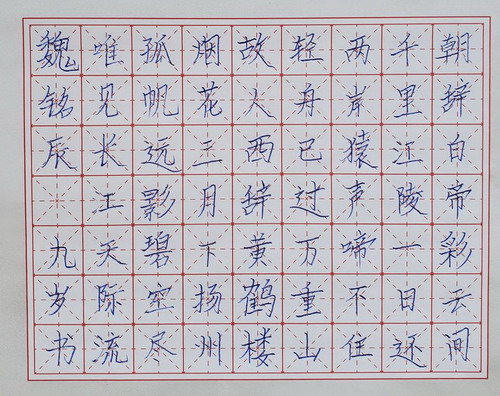 朝辞白帝彩云间
千里江陵一日还
两岸猿声啼不住
轻舟已过万重山
故人西辞黄鹤楼
烟花三月下扬州
孤帆远影碧空尽
唯见长江天际流
魏铭辰 九岁书